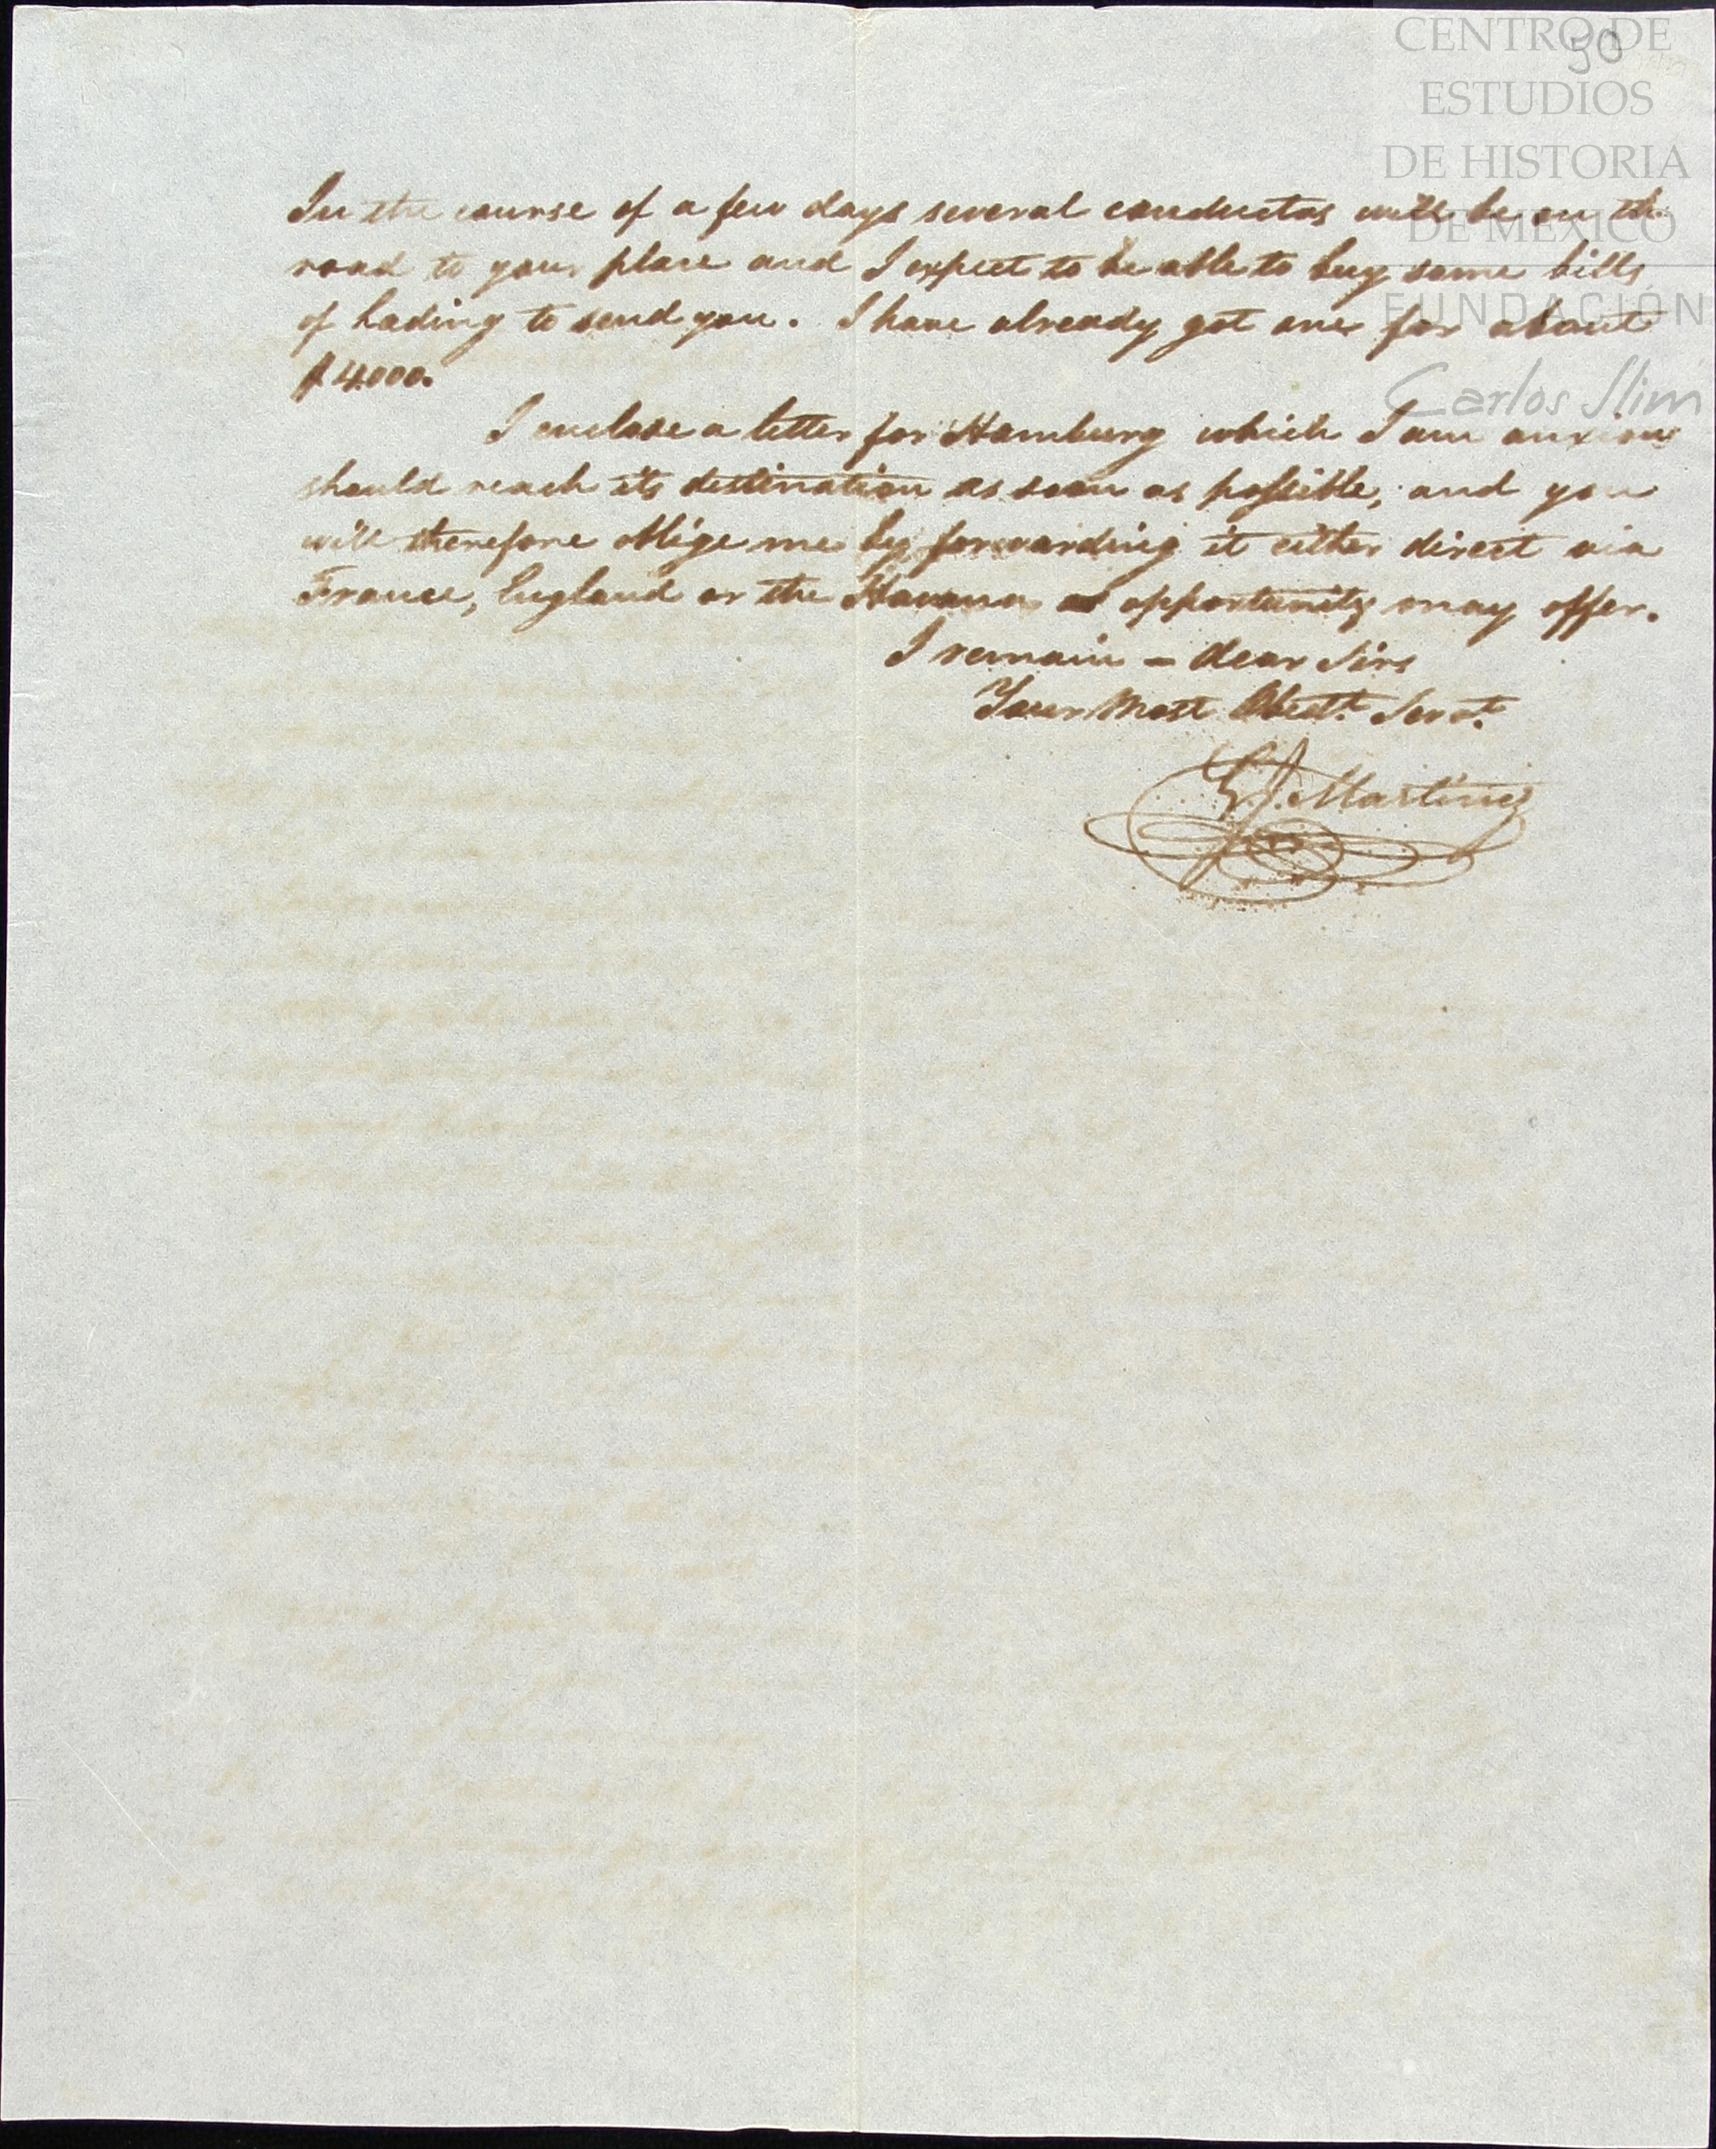 50
CENTRO DE
ESTUDIOS
DE HISTORIA
DE MÉXICO
FUNDACIÓN
Carlos Slim
In the course of a few days several conductas will be on the
road to your place and I expect to be able to buy some bills
of lading to send you. I have already got one for about
$4000.
I enclose a letter for Hamburg which I am anxious
should reach its destination as soon as possible, and you
will therefore oblige me by forwarding it either direct via
France, England or the Havana as opportunity may offer.
I remain - dear Sirs
Your Most Obedt. Servt.
G. J. Martinez